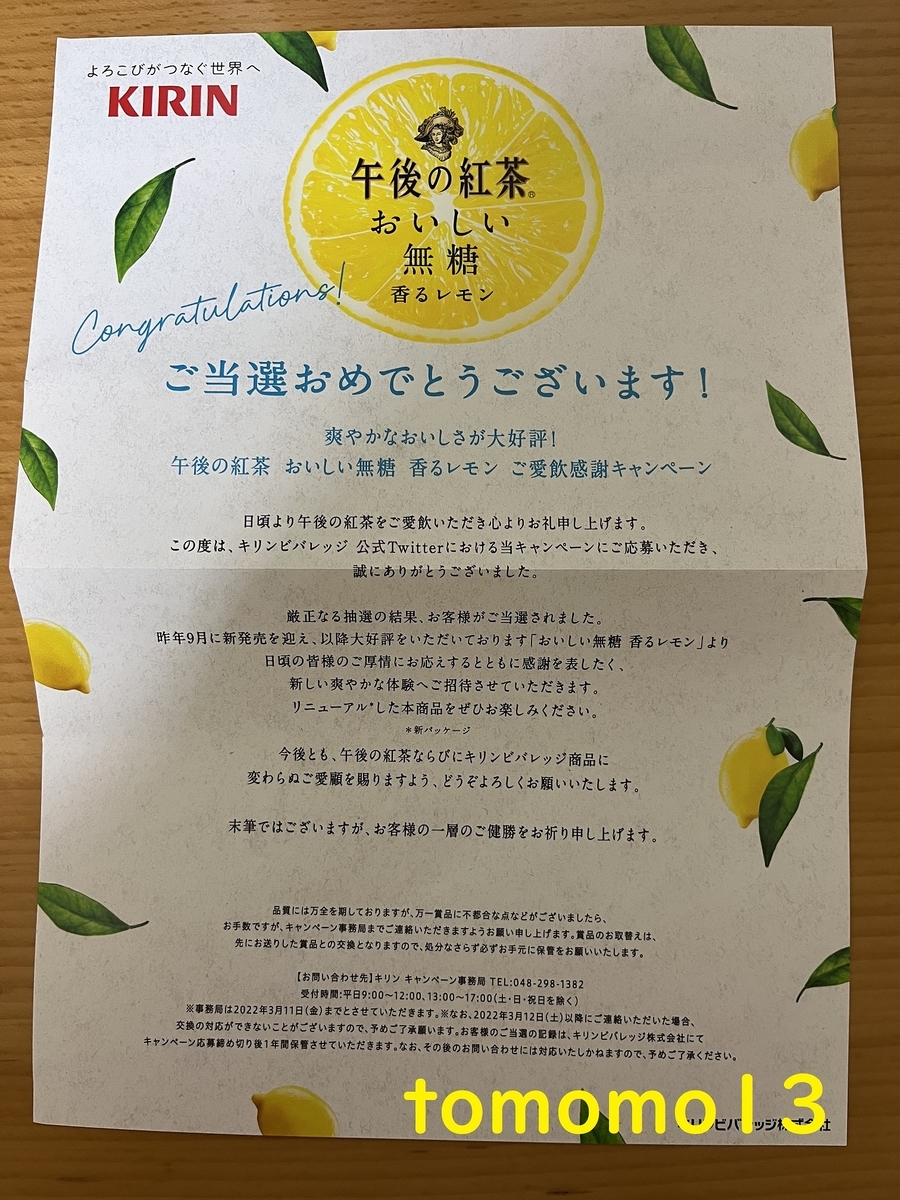 よろこびがつなぐ世界へ
KIRIN
午後の紅茶®
おいしい
無糖
香るレモン
Congratulations!
ご当選おめでとうございます！
爽やかなおいしさが大好評！
午後の紅茶 おいしい無糖 香るレモン ご愛飲感謝キャンペーン
日頃より午後の紅茶をご愛飲いただき心よりお礼申し上げます。
この度は、キリンビバレッジ 公式Twitterにおける当キャンペーンにご応募いただき、
誠にありがとうございました。
厳正なる抽選の結果、お客様がご当選されました。
昨年9月に新発売を迎え、以降大好評をいただいております「おいしい無糖 香るレモン」より
日頃の皆様のご厚情にお応えするとともに感謝を表したく、
新しい爽やかな体験へご招待させていただきます。
リニューアル*した本商品をぜひお楽しみください。
*新パッケージ
今後とも、午後の紅茶ならびにキリンビバレッジ商品に
変わらぬご愛顧を賜りますよう、どうぞよろしくお願いいたします。
末筆ではございますが、お客様の一層のご健勝をお祈り申し上げます。
品質には万全を期しておりますが、万一賞品に不都合な点などがございましたら、
お手数ですが、キャンペーン事務局までご連絡いただきますようお願い申し上げます。賞品のお取替えは、
先にお送りした賞品との交換となりますので、処分なさらず必ずお手元に保管をお願いいたします。
【お問い合わせ先】キリン キャンペーン事務局 TEL:048-298-1382
受付時間:平日9:00〜12:00、13:00〜17:00(土・日・祝日を除く)
※事務局は2022年3月11日(金)までとさせていただきます。※なお、2022年3月12日(土)以降にご連絡いただいた場合、
交換の対応ができないことがございますので、予めご了承願います。お客様のご当選の記録は、キリンビバレッジ株式会社にて
キャンペーン応募締め切り後1年間保管させていただきます。なお、その後のお問い合わせには対応いたしかねますので、予めご了承ください。
tomomo13
キリンビバレッジ株式会社